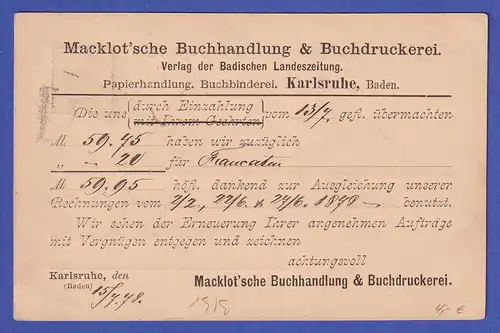 Macklot'sche Buchhandlung & Buchdruckerei.
Verlag der Badischen Landeszeitung.
Papierhandlung. Buchbinderei. Karlsruhe, Baden.
Die uns durch Einzahlung vom 13/7. gefl. übermachten
mit Ihrem Geehrten
M. 59.75 haben wir zuzüglich
„ – 20 für Francatur
M 59.95 höfl. dankend zur Ausgleichung unserer
Rechnungen vom 2/2, 22/6. & 24/6. 1878 benutzt.
Wir sehen der Erneuerung Ihrer angenehmen Aufträge
mit Vergnügen entgegen und zeichnen
achtungsvoll
Karlsruhe, den Macklot'sche Buchhandlung & Buchdruckerei.
(Baden) 15/7.78.